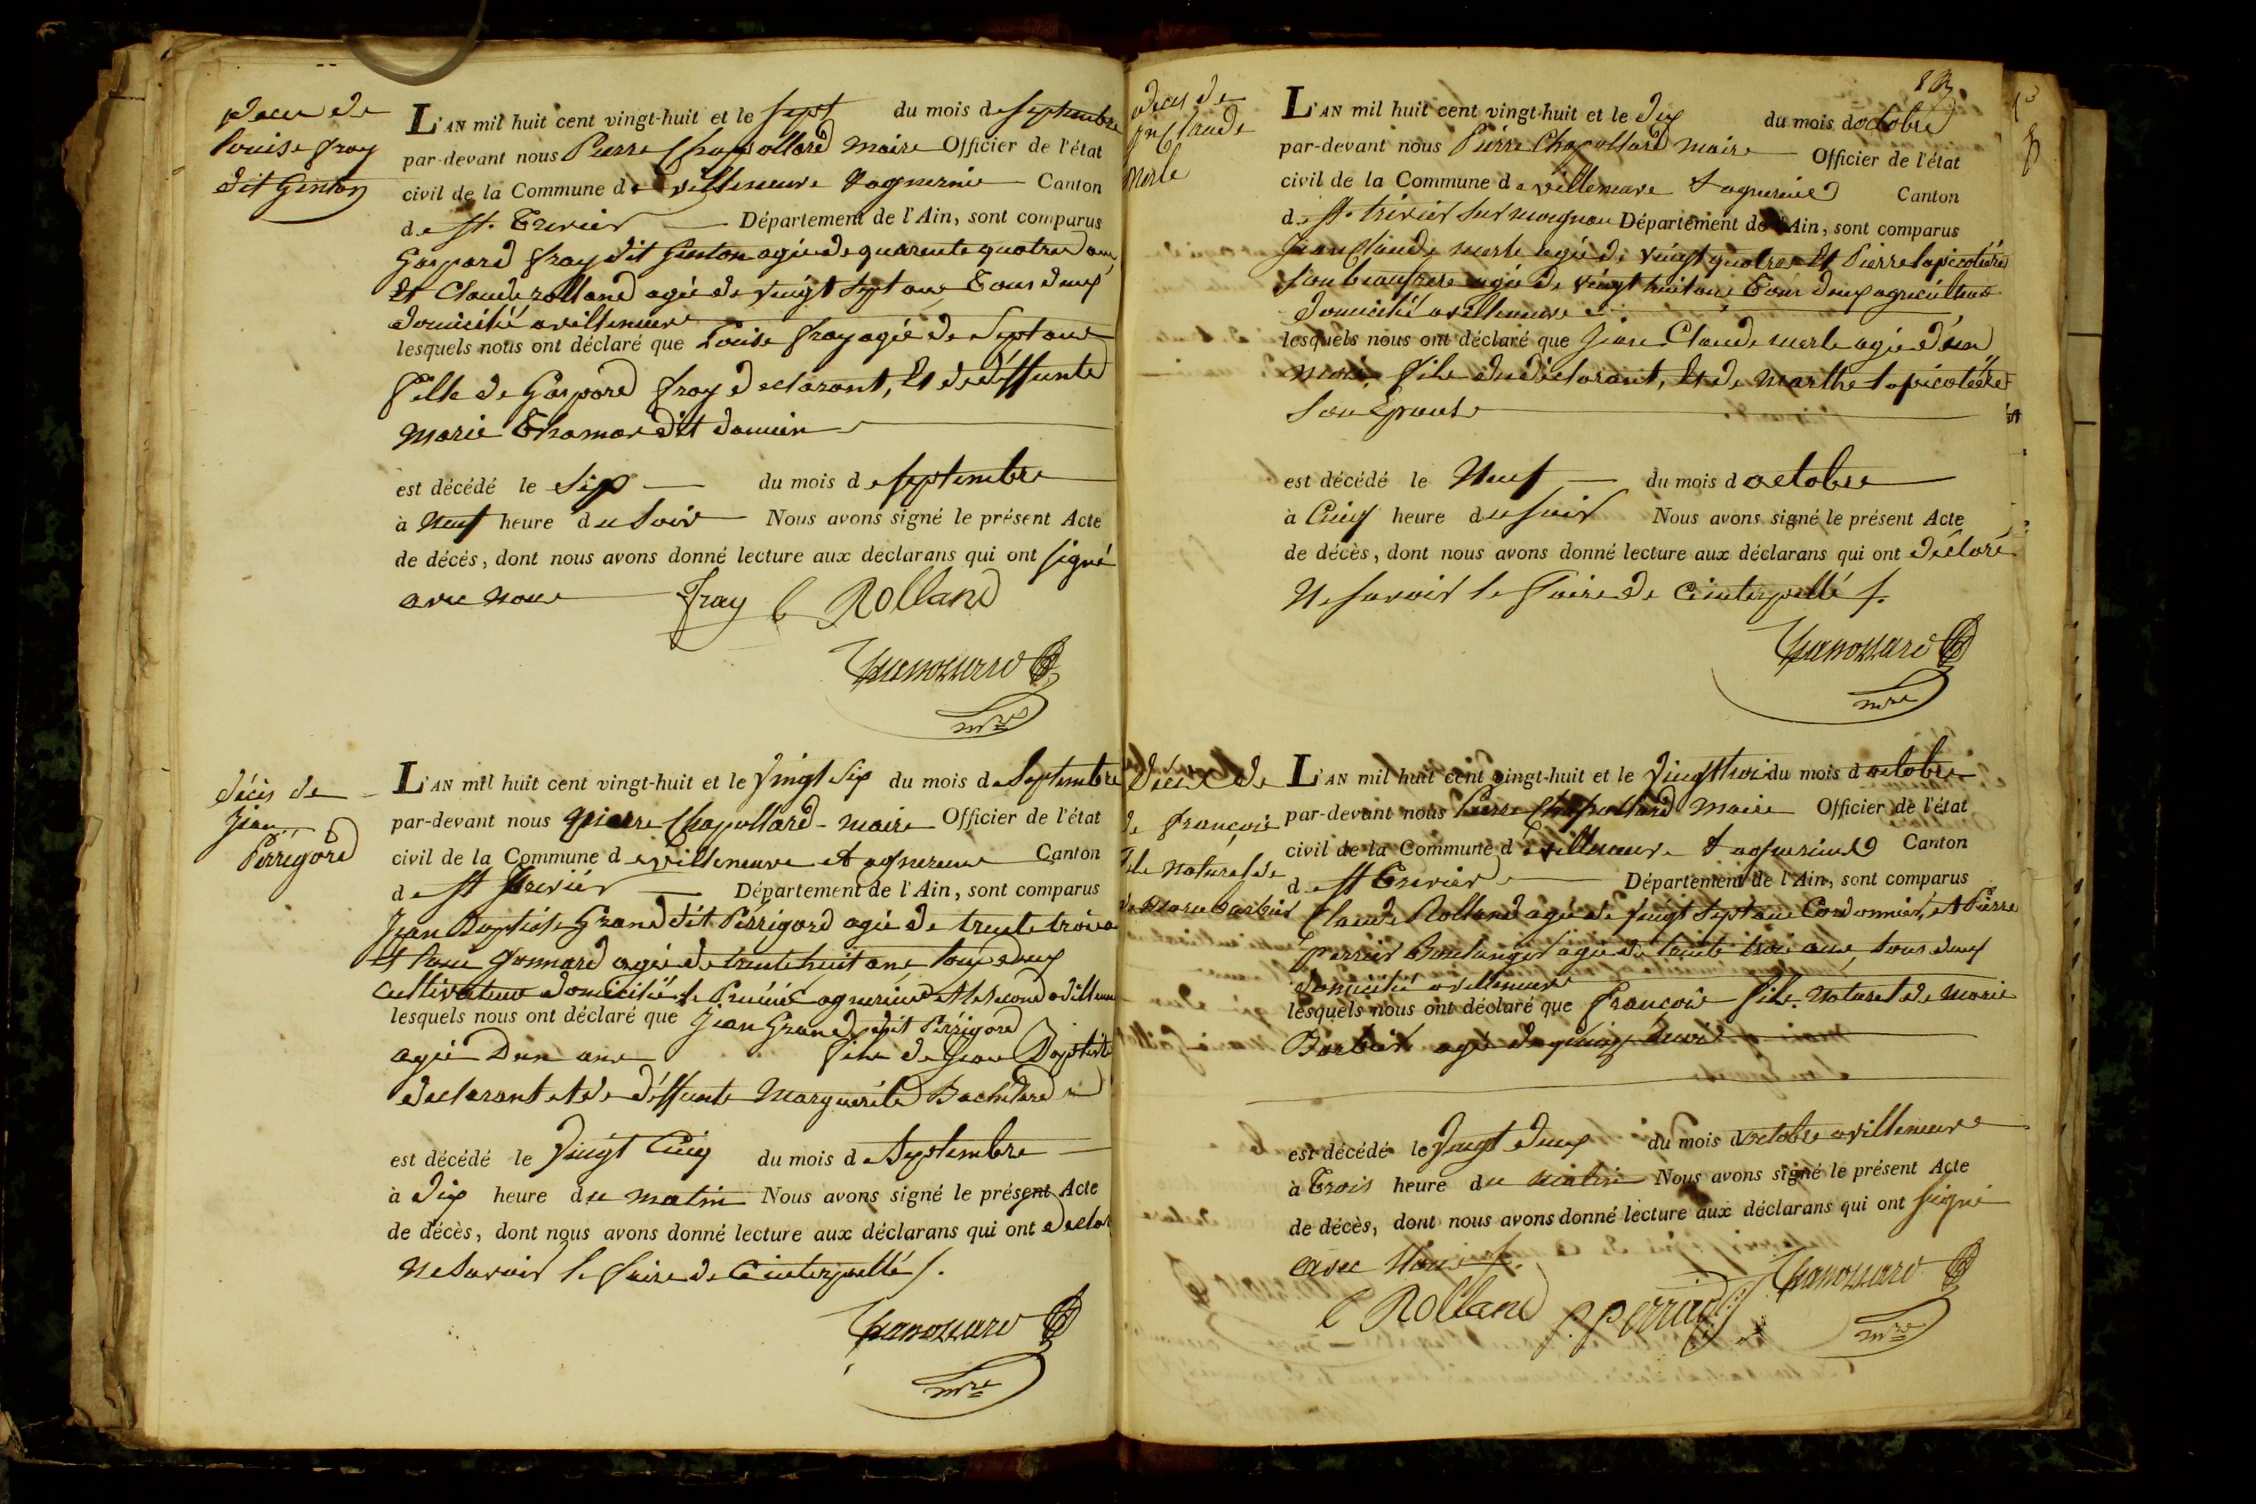 déces de
Louise fray
dit Ginton
L'AN mil huit cent vingt-huit et le sept du mois de septembre
par-devant nous Pierre Chapollard maire Officier de l'état
civil de la Commune de villeneuve & agnerein Canton
de St. Trivier Département de l'Ain, sont comparus
Gaspard fray dit Ginton agée de quarente quatre ans
Et Claude rolland agée de vingt sept ans Tous deux
domicilié a villeneuve
lesquels nous ont déclaré que Louise fray agée de Sept ans
fille de Gaspard fray declarant, Et de déffunte
Marie Thomas dit
est décédé le Six du mois de septembre
à Neuf heure du Soir Nous avons signé le présent Acte
de décés, dont nous avons donné lecture aux declarans qui ont signé
avec nous Fray C Rolland
Chapollard
mre
décès de
Jean
Perrigord
L'AN mil huit cent vingt-huit et le vingt Six du mois de Septembre
par-devant nous pierre Chapollard maire Officier de l'état
civil de la Commune de villeneuve et agnereins Canton
de St Trivier Département de l'Ain, sont comparus
Jean Baptiste Grand dit Périgord agée de trente trois a
Et Gonnard agée de trente huit ans tous deux
cultivateur domicilié le Premier agnereins Et le Second a villeneu
lesquels nous ont déclaré que Jean Grand dit Périgord
agée D'un ans fils de Jean Baptiste
declarant et de déffunte Marguerite Bachelard
est décédé le Vingt Cinq du mois de Septembre
à dix heure du matin Nous avons signé le présent Acte
de décès, dont nous avons donné lecture aux déclarans qui ont declar
Ne Savoir le faire de Ce interpellé /.
Chapollard
mre
déces de
Jn Claude
Merle
L'AN mil huit cent vingt-huit et le dix du mois doctobre
par-devant nous Pierre Chapollard maire Officier de l'état
civil de la Commune de villeneuve & agnereins Canton
de St. trivier sur moignan Département de l'Ain, sont comparus
Jean Claude merle agée de vingt quatre Et Pierre
Son beaufrere agée de vingt huit ans Tous deux agriculteur
domicilié a villeneuve
lesquels nous ont déclaré que Jean Claude merle agée d'un
mois, fils du déclarant, Et de Marthe
Son Epouse
est décédé le Neuf du mois d octobre
à Cinq heure du Soir Nous avons signé le présent Acte
de décès, dont nous avons donné lecture aux déclarans qui ont déclaré
Ne Savoir le faire de Ce interpellé /.
Chapollard
mre
décès de
de françois
fils naturel de
de marie Barbier
L'AN mil huit cent vingt-huit et le vingt trois du mois d octobre
par-devant nous Pierre Chapollard Maire Officier de l'état
civil de la Commune de villeneuve & agnereins Canton
de St Trivier Département de l'Ain, sont comparus
Claude Rolland agée de vingt Sept ans Cordonnier, et Pierre
Perrier Boulanger agée de trente trois ans, tous deux
domicilié a villeneuve
lesquels nous ont déclaré que François fils Naturel de Marie
Barbier agé de
est décédé le vingt deux du mois doctobre a villeneuve
à Trois heure du matin Nous avons signé le présent Acte
de décès, dont nous avons donné lecture aux déclarans qui ont signé
avec Nous /.
C Rolland p. perrier Chapollard
mre